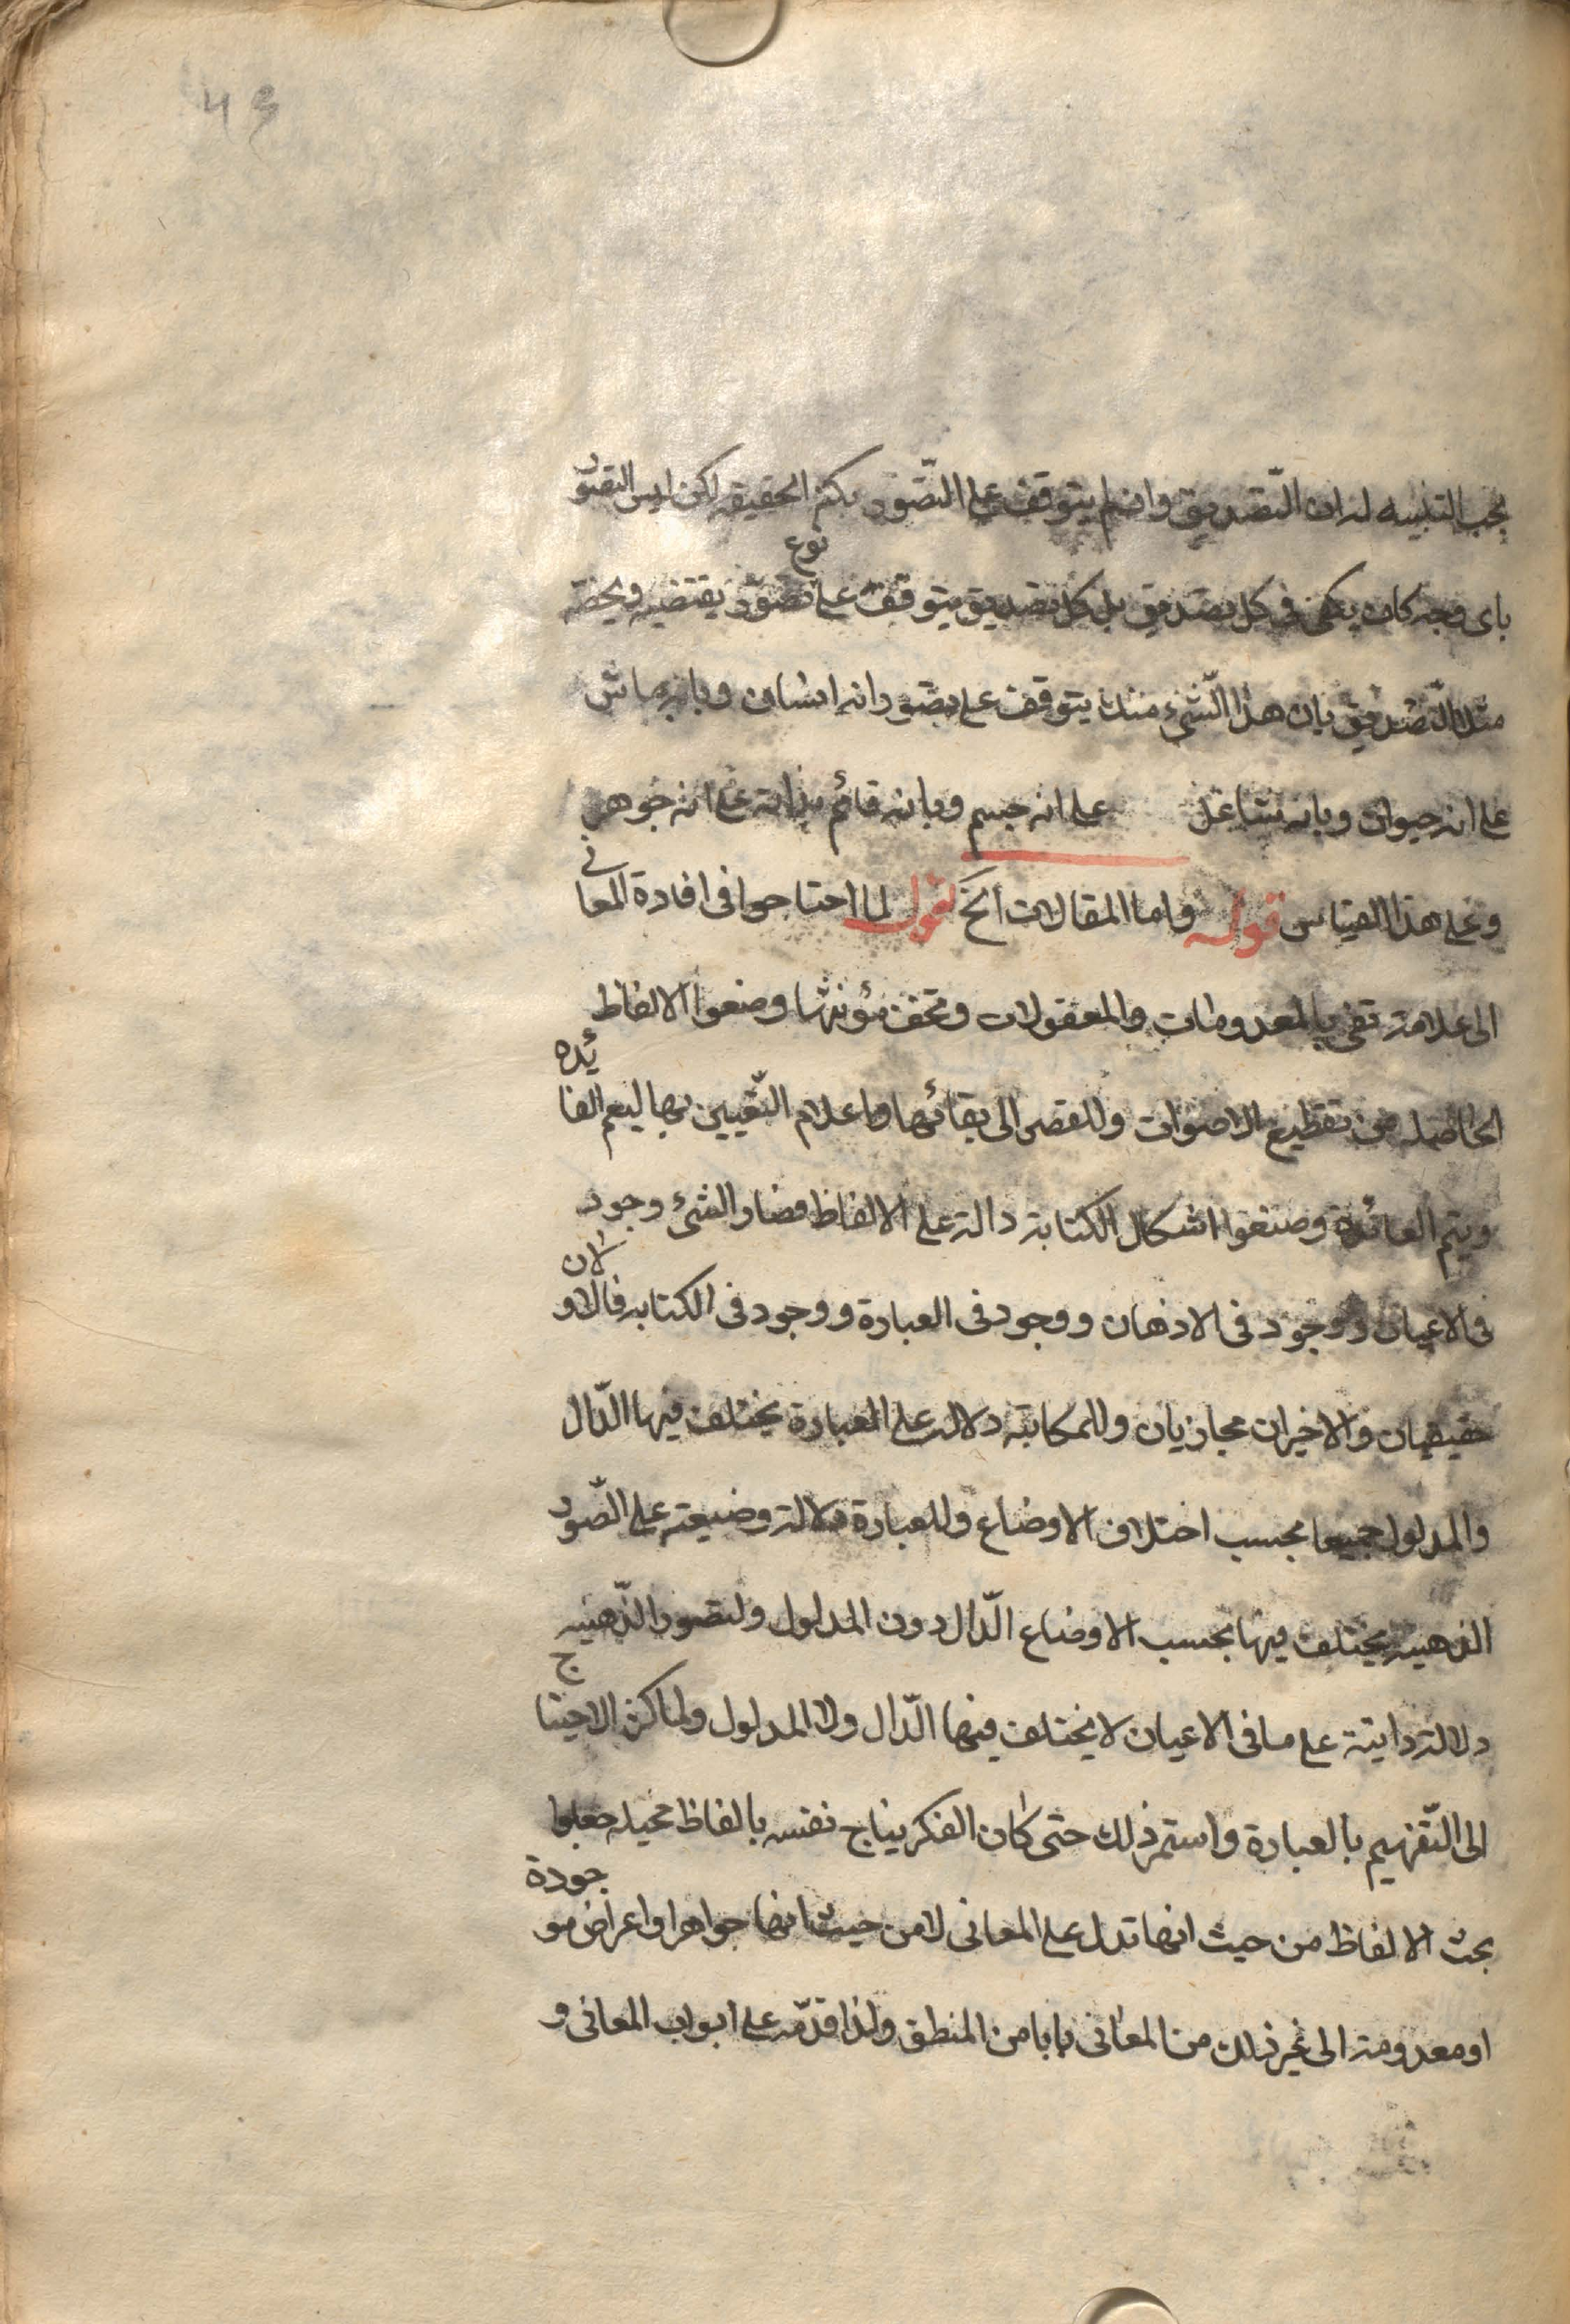 ٤٦
يجب التنبيه له ان التصديق وان لم يتوقف على التصور بكنه الحقيقه لكن ليس التصور
باى وجه كان يكفى فى كل تصديق بل كل تصديق يتوقف على نوع تصوّر يقتضيه ويخصّه
مثلا التّصديق بان هذا الشّىء منك يتوقف على تصور انه انسان وبانه ماش
على انه حيوان وبانه شاغل على انه جسم وبانه قائم بذاته على انه جوهر
وعلى هذا القياس قوله واما المقالات الخ لقول لما احتاجوا فى افادة المعانى
الى علامة تفى بالمعدومات والمعقولات وتخف مؤنتها وضعوا الالفاظ
الحاصله من تقطيع الاصوات وللقصر الى بقائها واعلام التّعيين بها ليعم الفائده
ويتم العائدة وضعوا اشكال الكتابة دالة على الالفاظ فصار الشىء وجود
فى الاعيان ووجود فى الاذهان ووجود فى العبارة ووجود فى الكتابه فالاولان
حقيقيان والاخيران مجازيان وللمكاتبة دلالت على العبارة يختلف فيها الدّال
والمدلول جميعا بحسب اختلاف الاوضاع وللعبارة دلالة وضيعته على الصّور
الذهنيه يختلف فيها بحسب الاوضاع الدّال دون المدلول ولتصور الذّهنيه
دلالة ذاتية على ما فى الاعيان لا يختلف فيها الدّال ولا المدلول ولما كثر الاحتياج
الى التّفهيم بالعبارة واستمر ذلك حتى كان الفكر يناج نفسه بالفاظ مخيله جعلوا
بحث الالفاظ من حيث انها تدل على المعانى لا من حيث انها جواهر او اعراض موجودة
او معدومة الى غير ذلك من المعانى بابا من المنطق ولذا قدّمه على ابواب المعانى و